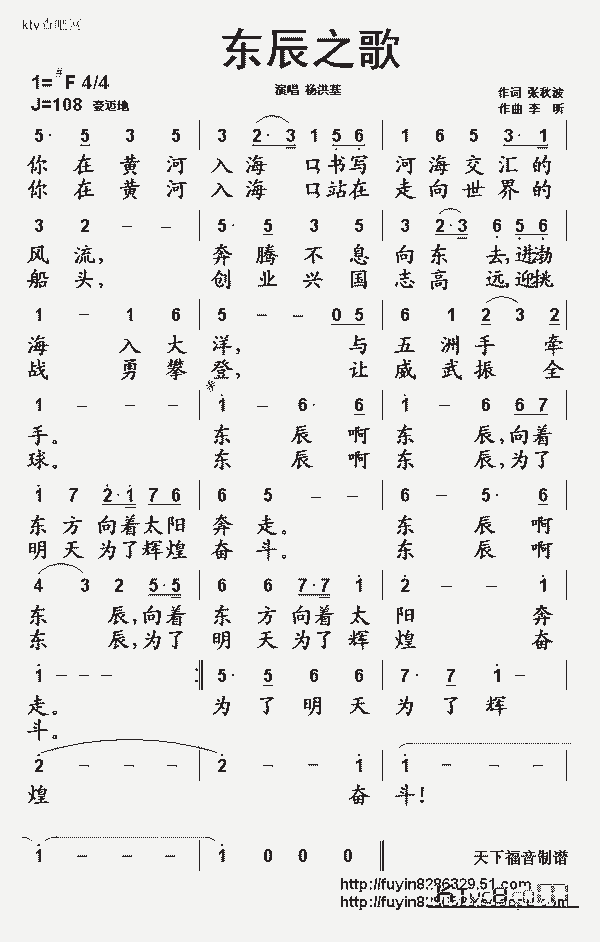 ktv
东辰之歌
1=#F 4/4
演唱 杨洪基
作词 张秋波
J=108 豪迈地
作曲 李 昕
5· 5 3 5 | 3 2·3 1 5 6 | 1 6 5 3·1
你 在 黄 河 入 海 口书写 河 海 交 汇 的
你 在 黄 河 入 海 口站在 走 向 世 界 的
3 2 - - | 5· 5 3 5 | 3 2·3 6 5 6
风 流, 奔 腾 不 息 向 东 去,进渤
船 头, 创 业 兴 国 志 高 远,迎挑
1 - 1 6 | 5 - - 0 5 | 6 1 2 3 2
海 入 大 洋, 与 五 洲 手 牵
战 勇 攀 登, 让 威 武 振 全
1 - - - | 1 - 6· 6 | 1 - 6 6 7
手。 东 辰 啊 东 辰,向着
球。 东 辰 啊 东 辰,为了
1 7 2·1 7 6 | 6 5 - - | 6 - 5· 6
东 方 向着太阳 奔 走。 东 辰 啊
明 天 为了辉煌 奋 斗。 东 辰 啊
4 3 2 5·5 | 6 6 7·7 1 | 2 - - 1
东 辰,向着 东 方 向着 太 阳 奔
东 辰,为了 明 天 为了 辉 煌 奋
1 - - - :| 5· 5 6 6 | 7· 7 1 -
走。 为 了 明 天 为 了 辉
斗。
2 - - - | 2 - - 1 | 1 - - -
煌 奋 斗!
1 - - - | 1 0 0 0 ‖
天下福音制谱
http://fuyin8286329.51.com